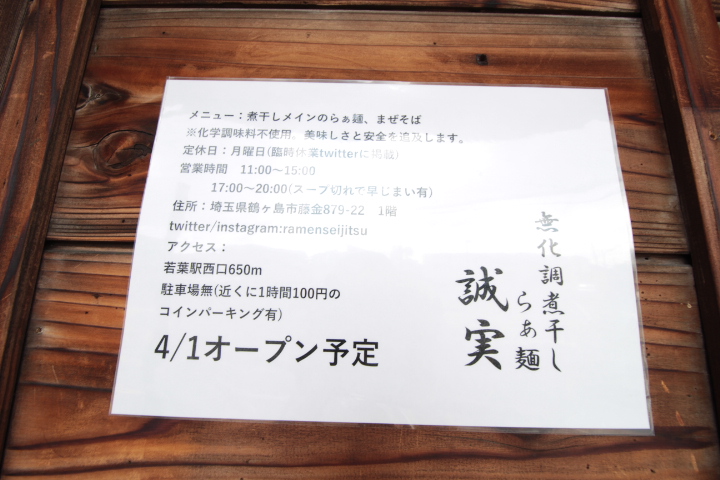 メニュー：煮干しメインのらぁ麺、まぜそば
※化学調味料不使用。美味しさと安全を追及します。
定休日：月曜日(臨時休業twitterに掲載)
営業時間 11:00～15:00
17:00～20:00(スープ切れで早じまい有)
住所：埼玉県鶴ヶ島市藤金879-22 1階
twitter/instagram:ramenseijitsu
アクセス：
若葉駅西口650m
駐車場無(近くに1時間100円の
コインパーキング有)
4/1オープン予定
無化調煮干し
らぁ麺
誠実